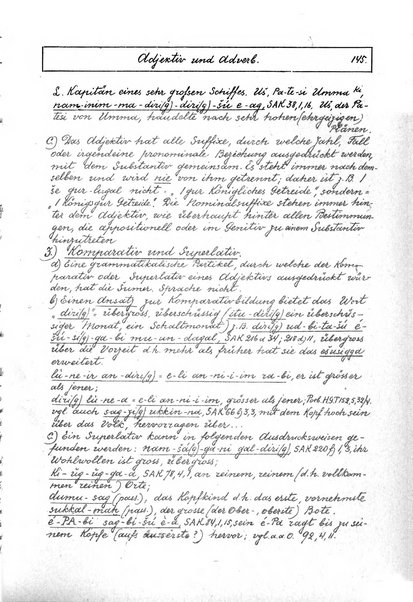 Adjektiv und Adverb. 145.
L. Kapitän eines sehr großen Schiffes. Uš, Pa-te-si Umma ki,
nam-inim-ma-diri(g)-diri(g)-šú e-ag, SAK. 38, 1, 16, Uš, der Pa-
tesi von Umma, handelte nach sehr hohen (ehrgeizigen)
Plänen.
c.) Das Adjektiv hat alle Suffixe, durch welche Zahl, Fall
oder irgendeine pronominale Beziehung ausgedrückt werden,
mit dem Substantiv gemeinsam. Es steht immer nach dem-
selben und wird nie von ihm getrennt, daher ist z.B. 1
še gur-lugal nicht - „1 gur Königliches Getreide", sondern =
„1 Königsgur Getreide." Die Nominalsuffixe stehen immer hin-
ter dem Adjektiv, wie überhaupt hinter allen Bestimmun-
gen, die appositionell oder im Genitiv zu einem Substantiv
hinzutreten
3.) Komparativ und Superlativ.
a) Eine grammatikalische Partikel, durch welche der Kom-
parativ oder Superlativ eines Adjektivs ausgedrückt wür-
den, hat die Sumer. Sprache nicht.
b) Einen Ansatz zur Komparativbildung bietet das Wort
„diri(g)" übergross, überschüssig (itu-diri(g) ein überschüs-
siger Monat, ein Schaltmonat) z.B. diri(g) ud-bi-ta-šú é-
šu-si(g)-ga-bi mu-un-dagal, SAK 216 d 34; 218 d 11, übergross
über die Vorzeit d.h. mehr als früher hat sie das
erweitert.
lù-ne-ir an-diri(g) = e-li an-ni-i-im ra-bi, er ist grösser
als jener;
diri(g) lù-ne-a = e-li an-ni-i-im, grösser als jener;
vgl auch sag-zi(g) ukkin-na, SAK 66 g 3,3, mit dem Kopf hoch sein
über das Volk, hervorragen über...
c.) Ein Superlativ kann in folgenden Ausdrucksweisen ge-
funden werden: nam-šà(g)-ga-ni gal-diri(g) SAK 220 f 1,3, ihr
Wohlwollen ist gross, übergross;
ki-úg-úg-ga-a, SAK. 78, 4, 1, an reinem, reinen (d.h. vollkom-
men reinen) Orte;
dumu-sag (paus.), das Kopfkind d.h. das erste, vornehmste
sukkal-maḫ (paus.), der grosse (der Ober-, oberste) Bote.
é-PA-bi sag-bi-šú è-a, SAK. 84, 1, 15, sein é-Pa ragt bis zu sei-
nem Kopfe (aufs äusserste?) hervor; vgl. a.a.O. 92, 4, 11.